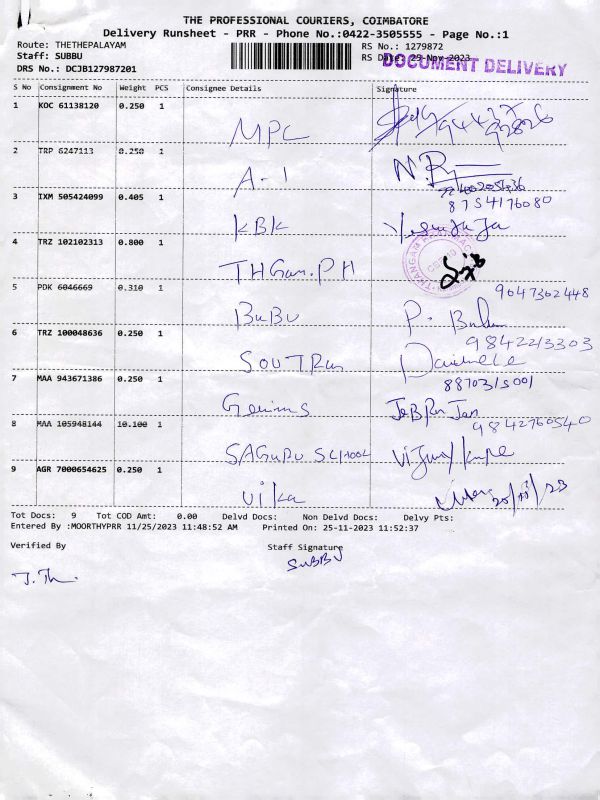 THE PROFESSIONAL COURIERS, COIMBATORE
Delivery Runsheet - PRR - Phone No.:0422-3505555 - Page No.:1
Route: THETHEPALAYAM
RS No.: 1279872
Staff: SUBBU
RS Date: 25-Nov-2023
DOCUMENT DELIVERY
DRS No.: DCJB127987201
S No Consignment No Weight PCS Consignee Details Signature
1 KOC 61138120 0.250 1
MPC 94437
92826
2 TRP 6247113 0.250 1
A-1
8754176080
3 IXM 505424099 0.405 1
KBK
4 TRZ 102102313 0.800 1
THGam.PH
5 PDK 6046669 0.310 1
9047362448
BUBU P.
9842213303
6 TRZ 100048636 0.250 1
SOUTRan
7 MAA 943671386 0.250 1
8870315001
Genims
9842760540
8 MAA 105948144 10.100 1
SAGURU SCHOOL
9 AGR 7000654625 0.250 1
Vika
Tot Docs: 9 Tot COD Amt: 0.00 Delvd Docs: Non Delvd Docs: Delvy Pts:
Entered By :MOORTHYPRR 11/25/2023 11:48:52 AM Printed On: 25-11-2023 11:52:37
Verified By Staff Signature
SUBBU